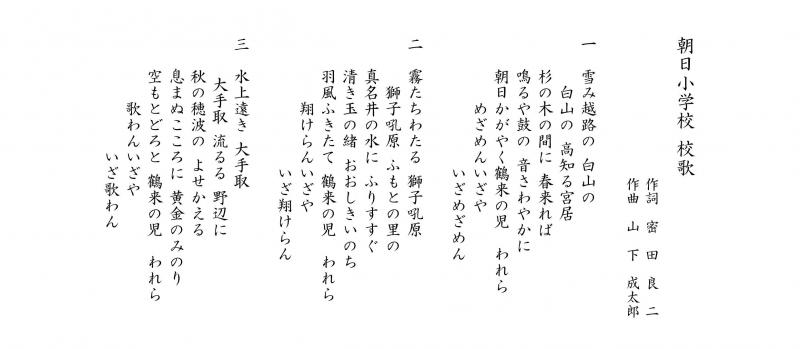 朝日小学校 校歌
作詞 密田良二
作曲 山下成太郎
一 雪み越路の 白山の
白山の 高知る宮居
杉の木の間に 春来れば
鳴るや鼓の 音さわやかに
朝日かがやく鶴来の児 われら
めざめんいざや
いざめざめん
二 霧たちわたる 獅子吼原
獅子吼原 ふもとの里の
真名井の水に ふりすすぐ
清き玉の緒 おおしきいのち
羽風ふきたて 鶴来の児 われら
翔けらんいざや
いざ翔けらん
三 水上遠き 大手取
大手取 流るる 野辺に
秋の穂波の よせかえる
息まぬこころに 黄金のみのり
空もとどろと 鶴来の児 われら
歌わんいざや
いざ歌わん